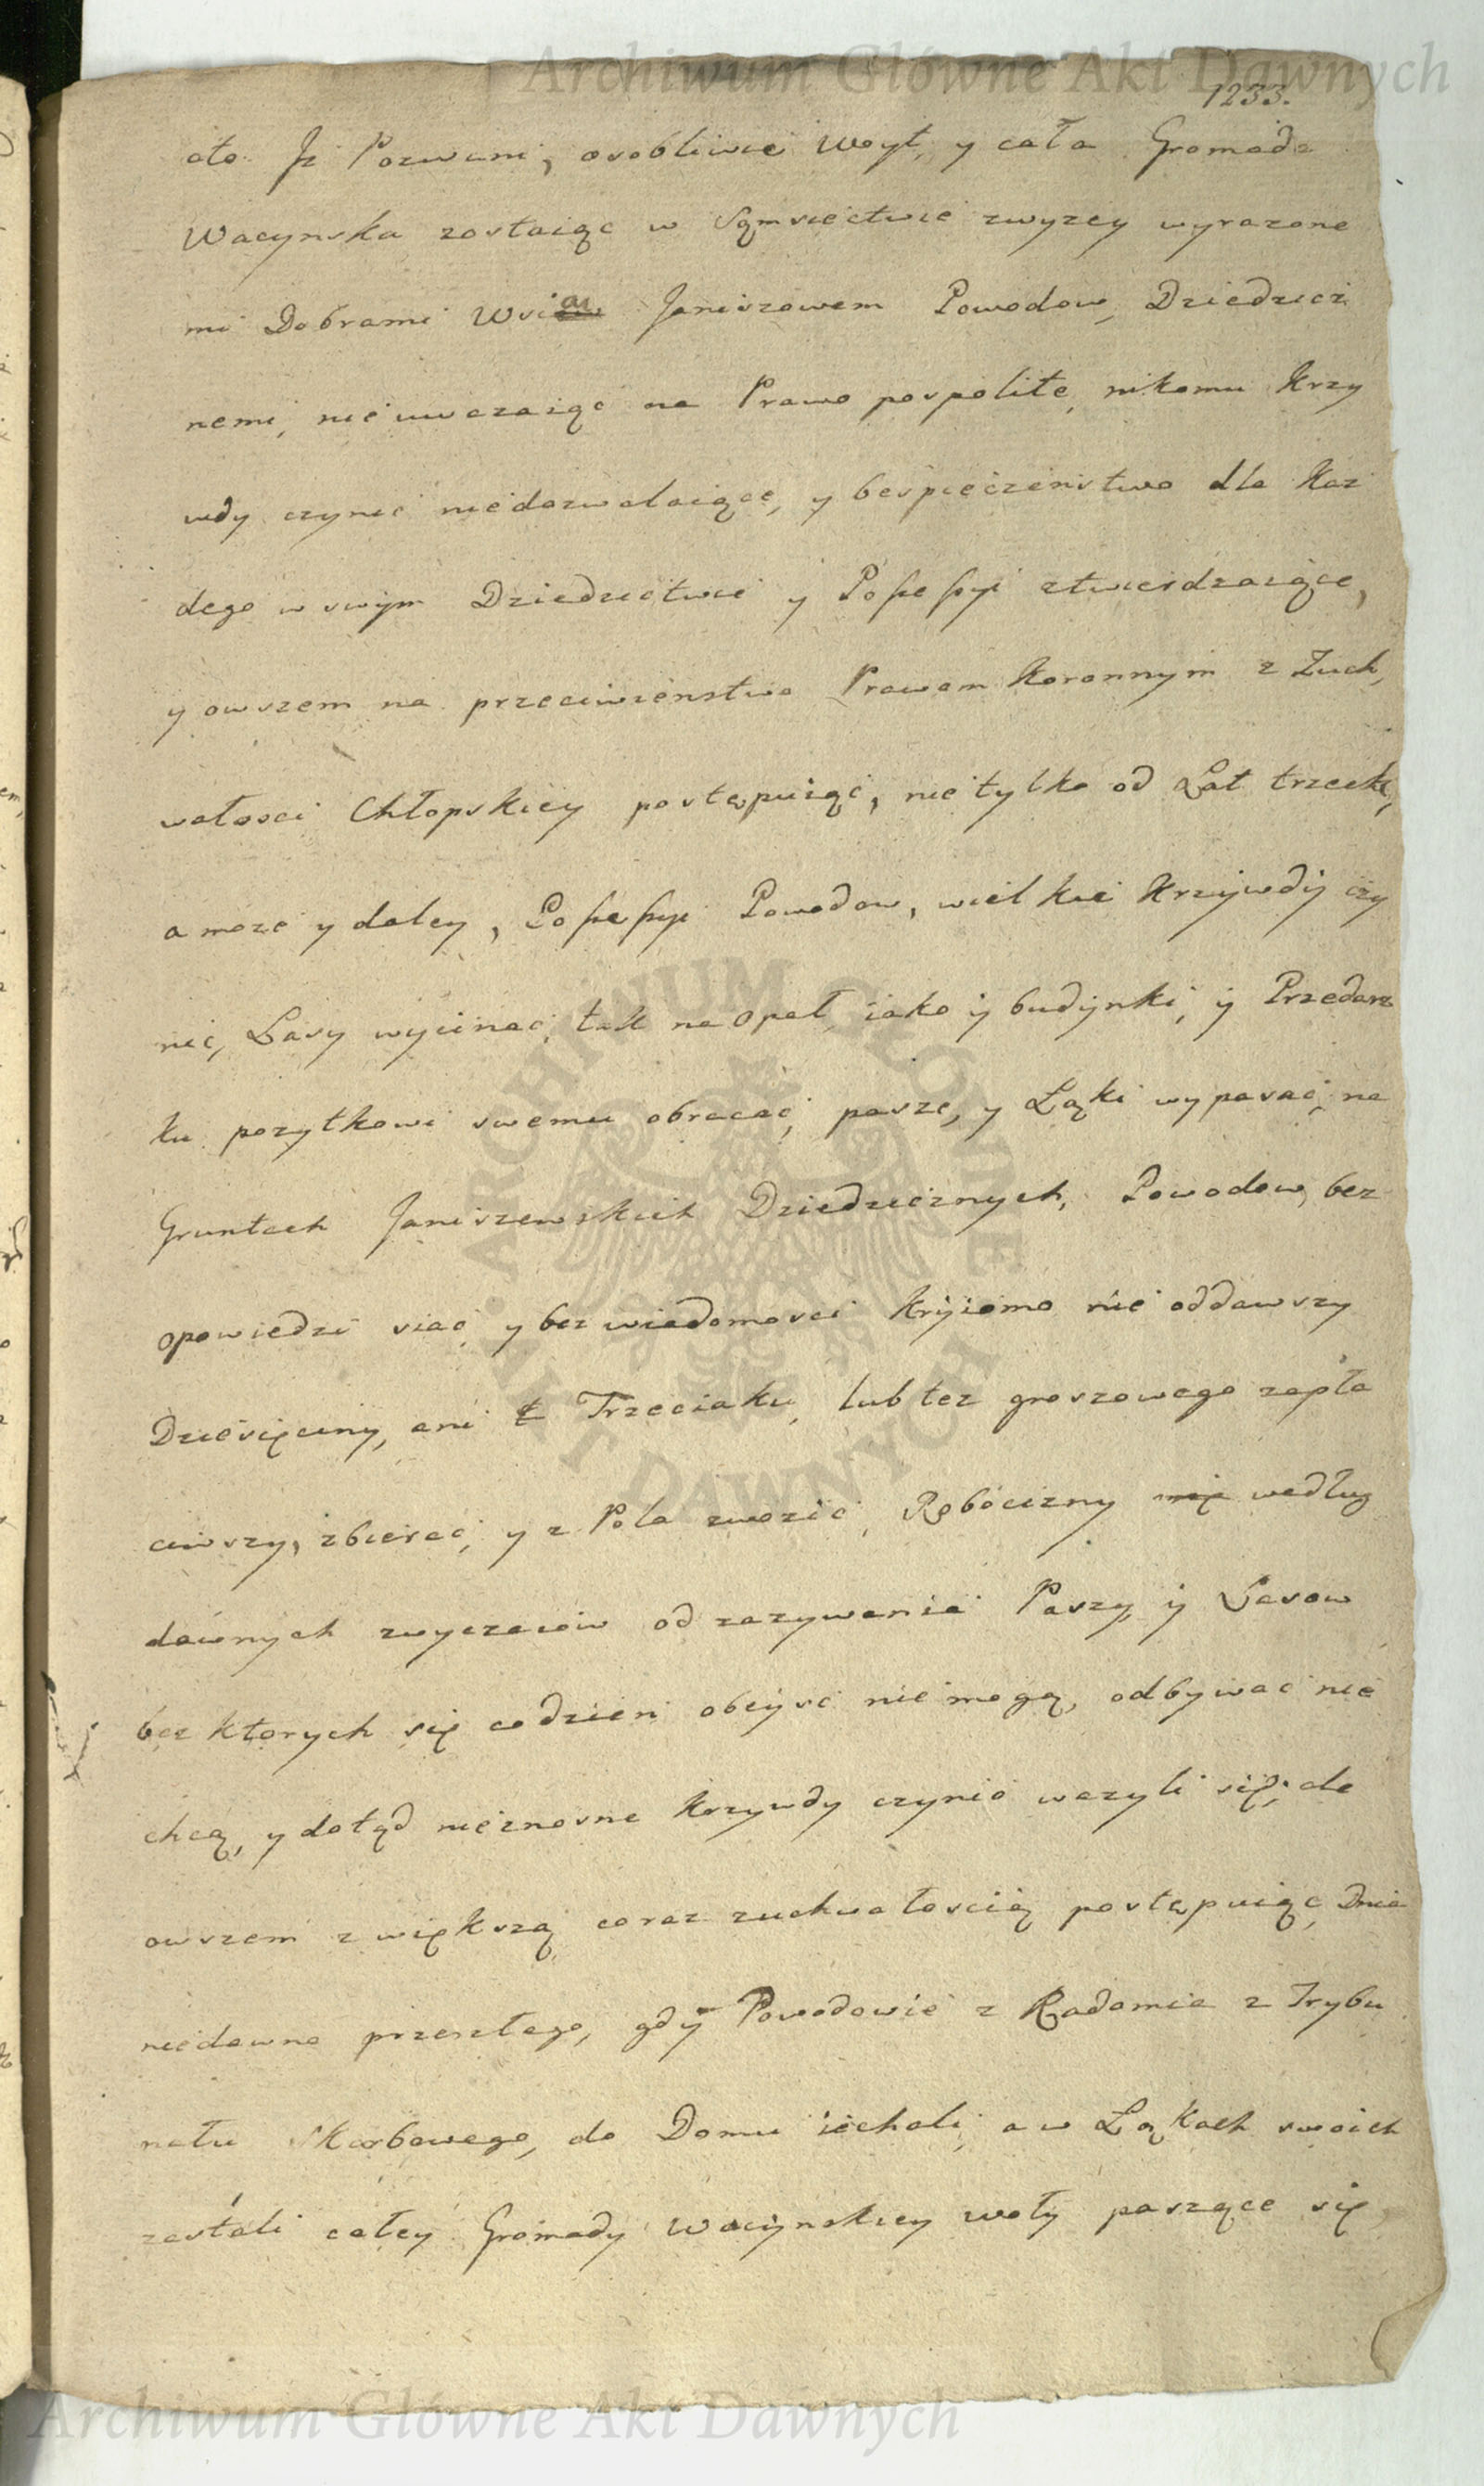 Archiwum Główne Akt Dawnych
1233.
oto Jz Pozwani, osobliwie Woyt, y cała Gromada
Wacynska zostaiąc w Sąmsiectwie zwyzey wyrazone
mi Dobrami Wsią Janiszowem Powodow, Dziedzicz
nemi, nieuwazaiąc na Prawo pospolite, nikomu Krzy
wdy czynic niedozwalaiące, y bespieczenstwo dla Kaz
dego w swym Dziedzictwie y Possessyi ztwierdzaiące,
y owszem na przeciwienstwo Prawom Koronnym z Zuch,
wałosci Chłopskiey postępuiąc, nie tylko od Lat trzech,
a moze y daley, Possessyi Powodow, wielkie Krzywdy czy
nic, Lasy wycinac, tak na Opał, iako y budynki, y Przedarz
ku pozytkowi swemu obracac, pasze, y Łąki wypasac, na
Gruntach Janiszewskich Dziedzicznych, Powodow, bez
opowiedzi siac y bez wiadomosci Kryiomo nie oddawszy
Dziesięciny, ani Trzeciaku, lub tez groszowego zapła
ciwszy, zbierac, y z Pola zwozic, Robocizny według
dawnych zwyczaiow od zazywania Paszy, y Lasow
bez ktorych się codzien obeysc nie mogą, odbywac nie
chcą, y dotąd nieznosne Krzywdy czynic wazyli się, ale
owszem z większą coraz zuchwałoscią postępuiąc Dnia
niedawno przeszłego, gdy Powodowie z Radomia z Trybu
nału Skarbowego, do Domu iechali, a w Łąkach swoich
zastali całey Gromady Wacynskiey woły paszące się,
ARCHIWUM GŁÓWNE AKT DAWNYCH
Archiwum Główne Akt Dawnych